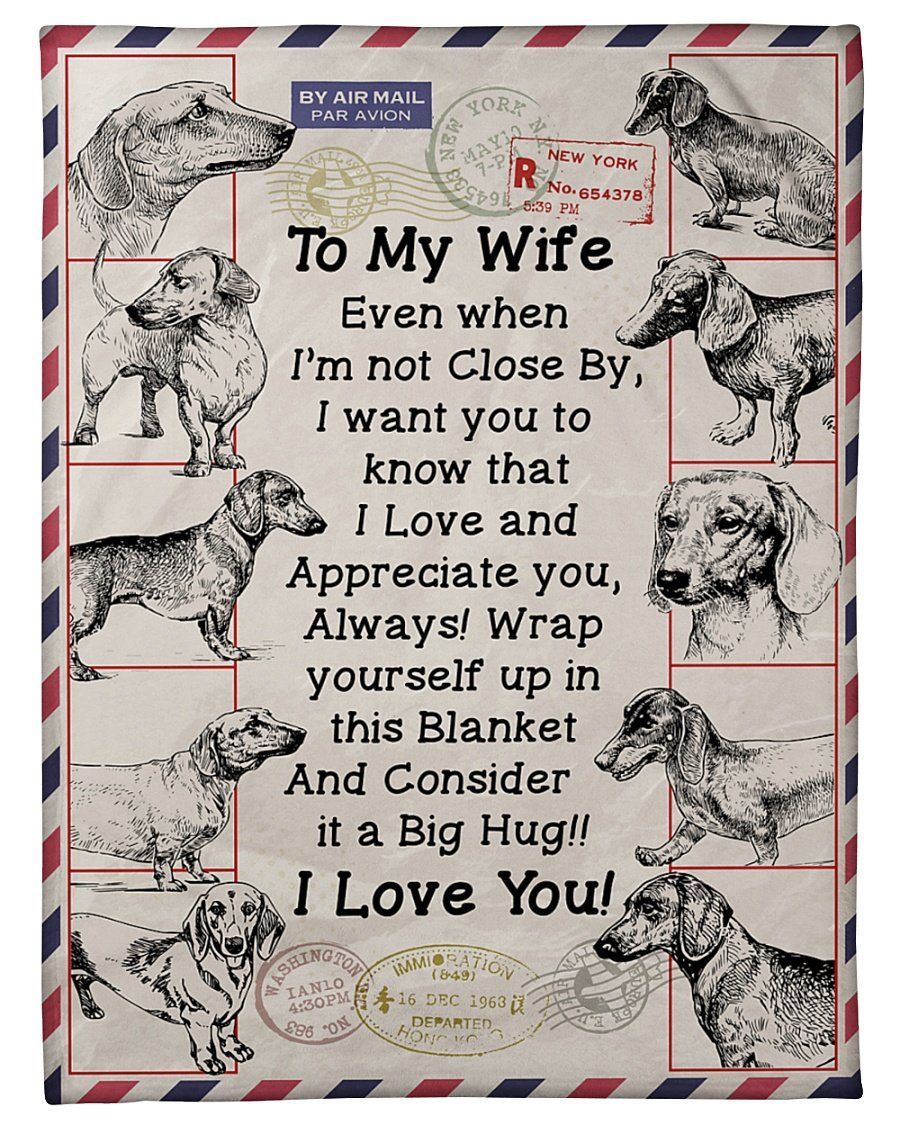 BY AIR MAIL
PAR AVION
NEW YORK N.Y.
MAY 10
7-PM
164536
R
NEW YORK
No. 654378
5:39 PM
To My Wife
Even when
I'm not Close By,
I want you to
know that
I Love and
Appreciate you,
Always! Wrap
yourself up in
this Blanket
And Consider
it a Big Hug!!
I Love You!
WASHINGTON
IAN10
4:30PM
NO. 983
IMMIGRATION
(849)
16 DEC 1963
DEPARTED
HONG KONG